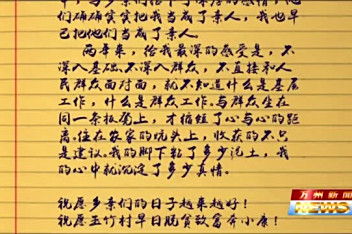 章，与乡亲们结下了深厚的感情，他
们确确实实把我当成了亲人，我也早
已把他们当成了亲人。
两年来，给我最深的感受是，不
深入基础、不深入群众，不直接和人
民群众面对面，就不知道什么是基层
工作，什么是群众工作。与群众坐在
同一条板凳上，才缩短了心与心的距
离。住在农家的炕头上，收获的不只
是建议。我的脚下粘了多少泥土，我
的心中就沉淀了多少真情。
祝愿乡亲们的日子越来越好！
祝愿玉竹村早日脱贫致富奔小康！
万州新闻
NEWS